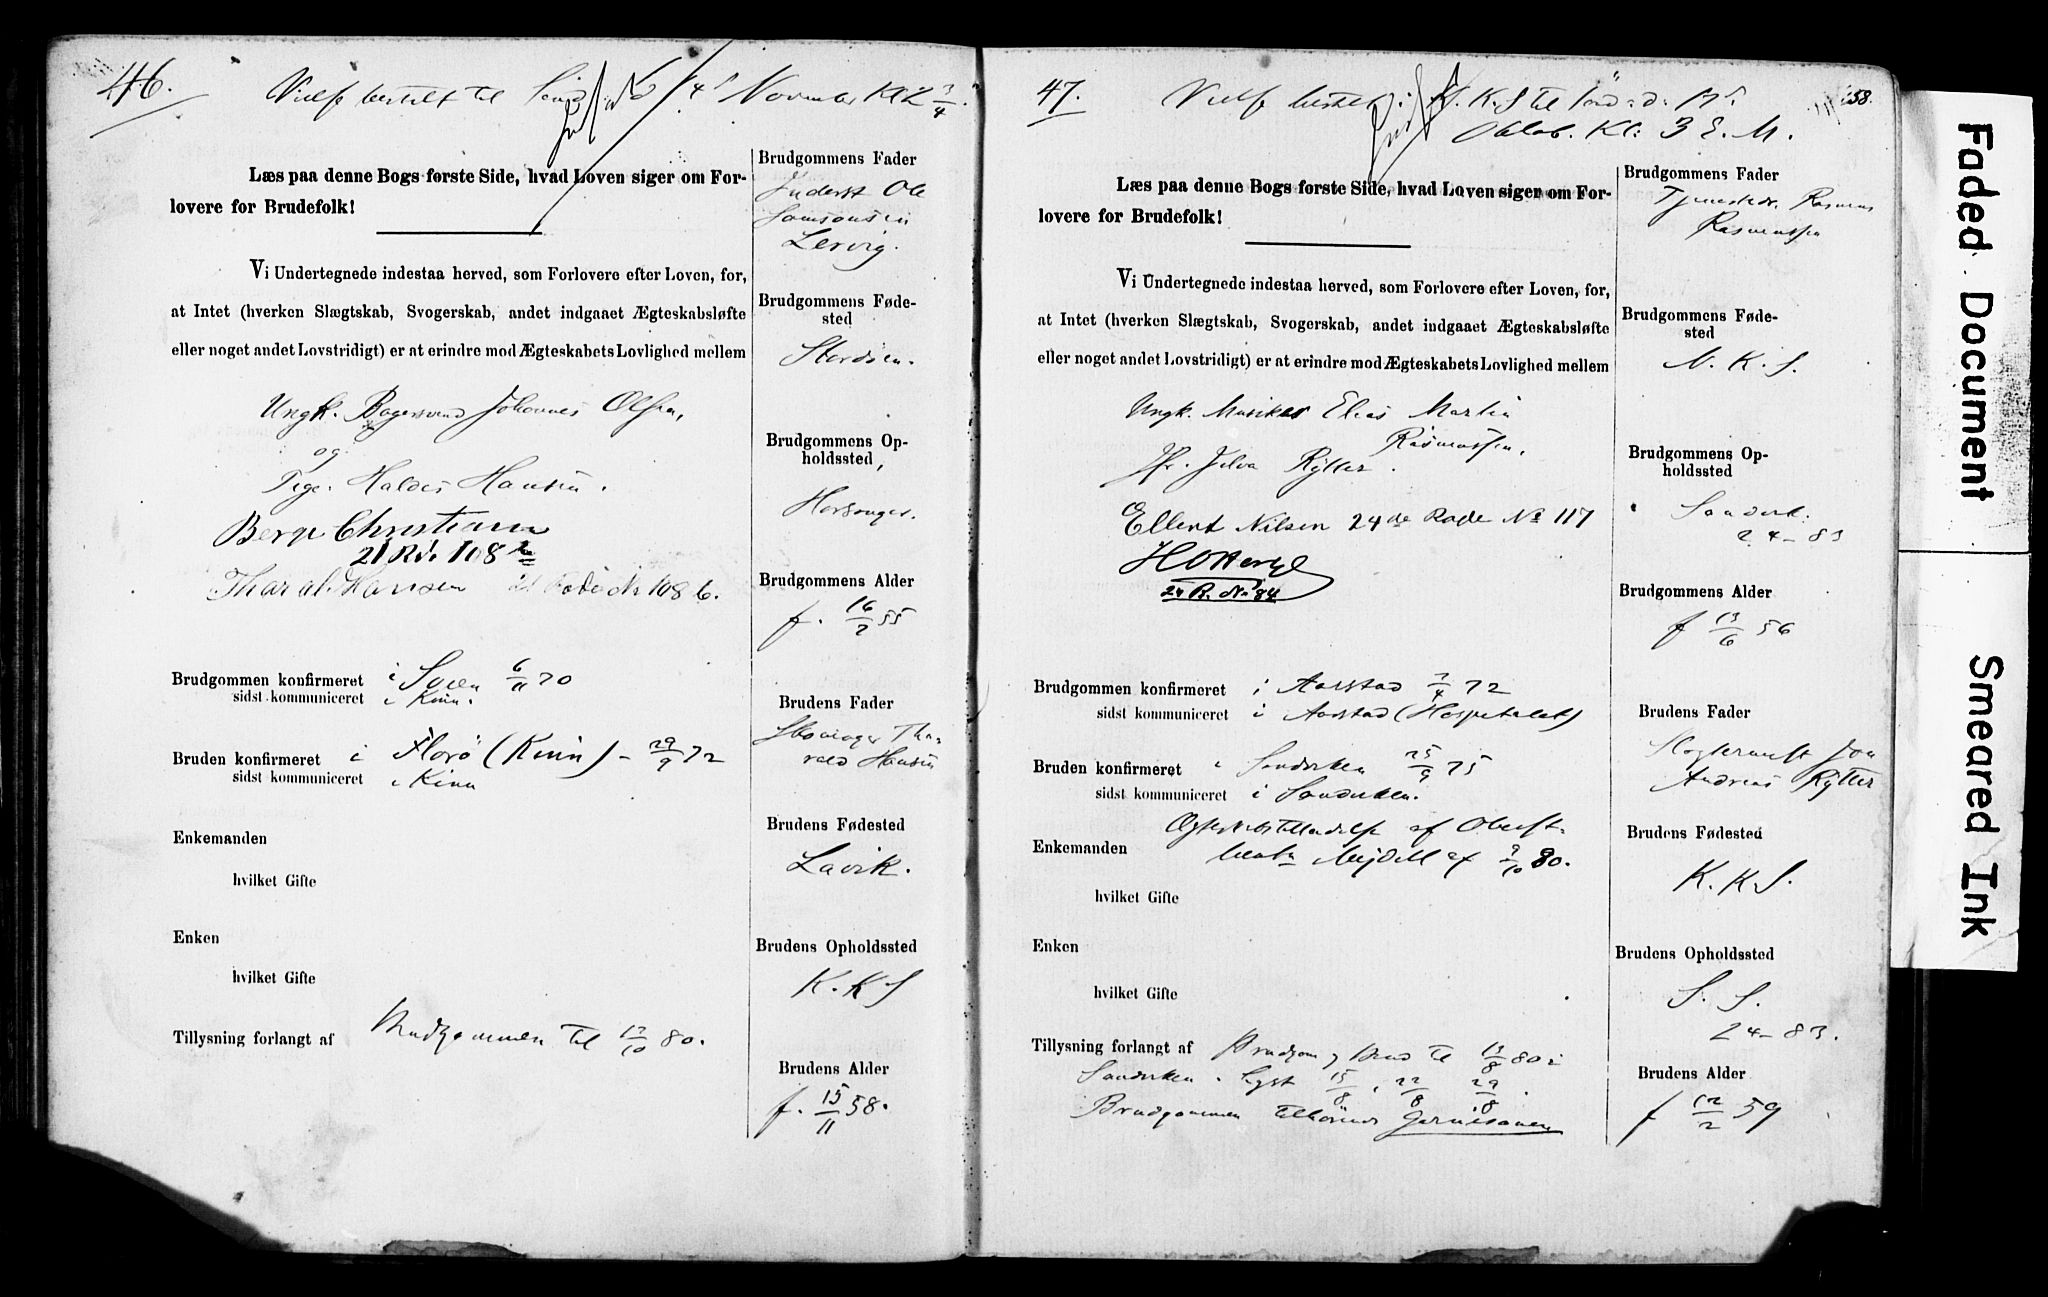 46.
Vielse bestilt til November Kl 2 3/4.
Læs paa denne Bogs første Side, hvad Loven siger om For-
lovere for Brudefolk!
Vi Undertegnede indestaa herved, som Forlovere efter Loven, for,
at Intet (hverken Slægtskab, Svogerskab, andet indgaaet Ægteskabsløfte
eller noget andet Lovstridigt) er at erindre mod Ægteskabets Lovlighed mellem
Ungk. Bagersvend Johannes Olsen,
og
Pige Haldis Hansen.
Berge Christian
21 Rd. 108
Tharald Hansen 21 Rode No 108 b.
Brudgommen konfirmeret i 6/11 70
sidst kommuniceret i Kinn.
Bruden konfirmeret i Florö (Kinn) - 29/9 72
sidst kommuniceret i Kinn
Enkemanden
hvilket Gifte
Enken
hvilket Gifte
Tillysning forlangt af Brudgommen til 17/10 80.
Brudgommens Fader
Inderst Ole
Samsonsen
Lervig.
Brudgommens Føde-
sted
Stordöen.
Brudgommens Op-
holdssted,
Brudgommens Alder
f. 16/2 55
Brudens Fader
Tha-
rald Hansen
Brudens Fødested
Lavik.
Brudens Opholdssted
K. K S
Brudens Alder
f. 15/11 58.
47.
158.
Vielse bestilt i K. S til
Oktob. Kl: 3 E. M.
Læs paa denne Bogs første Side, hvad Loven siger om For-
lovere for Brudefolk!
Vi Undertegnede indestaa herved, som Forlovere efter Loven, for,
at Intet (hverken Slægtskab, Svogerskab, andet indgaaet Ægteskabsløfte
eller noget andet Lovstridigt) er at erindre mod Ægteskabets Lovlighed mellem
Ungk. Musiker Elias Martin
Rasmussen,
Jfr. Rÿtter.
Ellert Nilsen 24de Rode No 117
24 R. No 84
Brudgommen konfirmeret i Aarstad 7/4 72
sidst kommuniceret i Aarstad (Hospitalet)
Bruden konfirmeret i Sandviken 25/9 75
sidst kommuniceret i Sandviken.
Ægteskabstilladelse af Oberst-
Mejdell af 9/10 80.
Enkemanden
hvilket Gifte
Enken
hvilket Gifte
Tillysning forlangt af Brudgom og Brud til 13/8 80 i
Sandviken. Lyst 15/8, 22/8 29/8.
Brudgommen tilhörer Garnisonen
Brudgommens Fader
Tjenestek. Rasmus
Rasmussen
Brudgommens Føde-
sted
N. K. S.
Brudgommens Op-
holdssted
Sandvik.
24 - 83
Brudgommens Alder
f 13/6 56
Brudens Fader
Slagtermest Jon
Andreas Rÿtter
Brudens Fødested
K. K. S.
Brudens Opholdssted
S. S.
24 - 83.
Brudens Alder
f 12/2 59
Faded Document
Smeared Ink